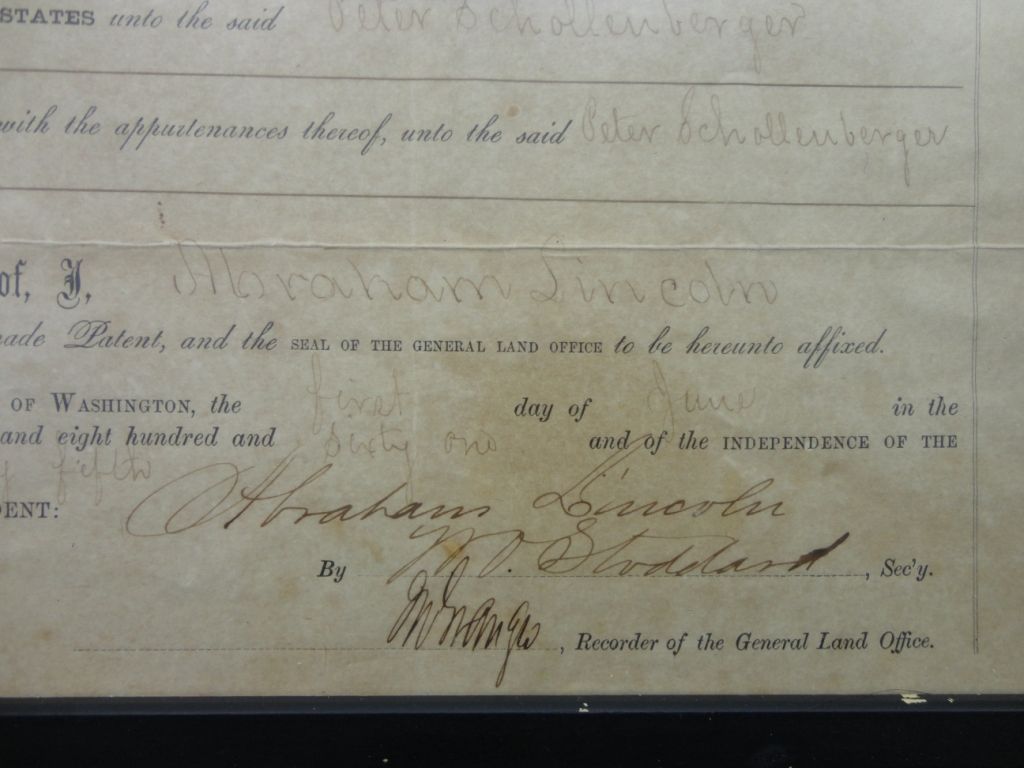 STATES unto the said Peter Schollenberger
with the appurtenances thereof, unto the said Peter Schollenberger
of, I, Abraham Lincoln
made Patent, and the SEAL OF THE GENERAL LAND OFFICE to be hereunto affixed.
OF WASHINGTON, the first day of June in the
and eight hundred and sixty one and of the INDEPENDENCE OF THE
y fifth
DENT: Abraham Lincoln
By W. O. Stoddard, Sec'y.
, Recorder of the General Land Office.